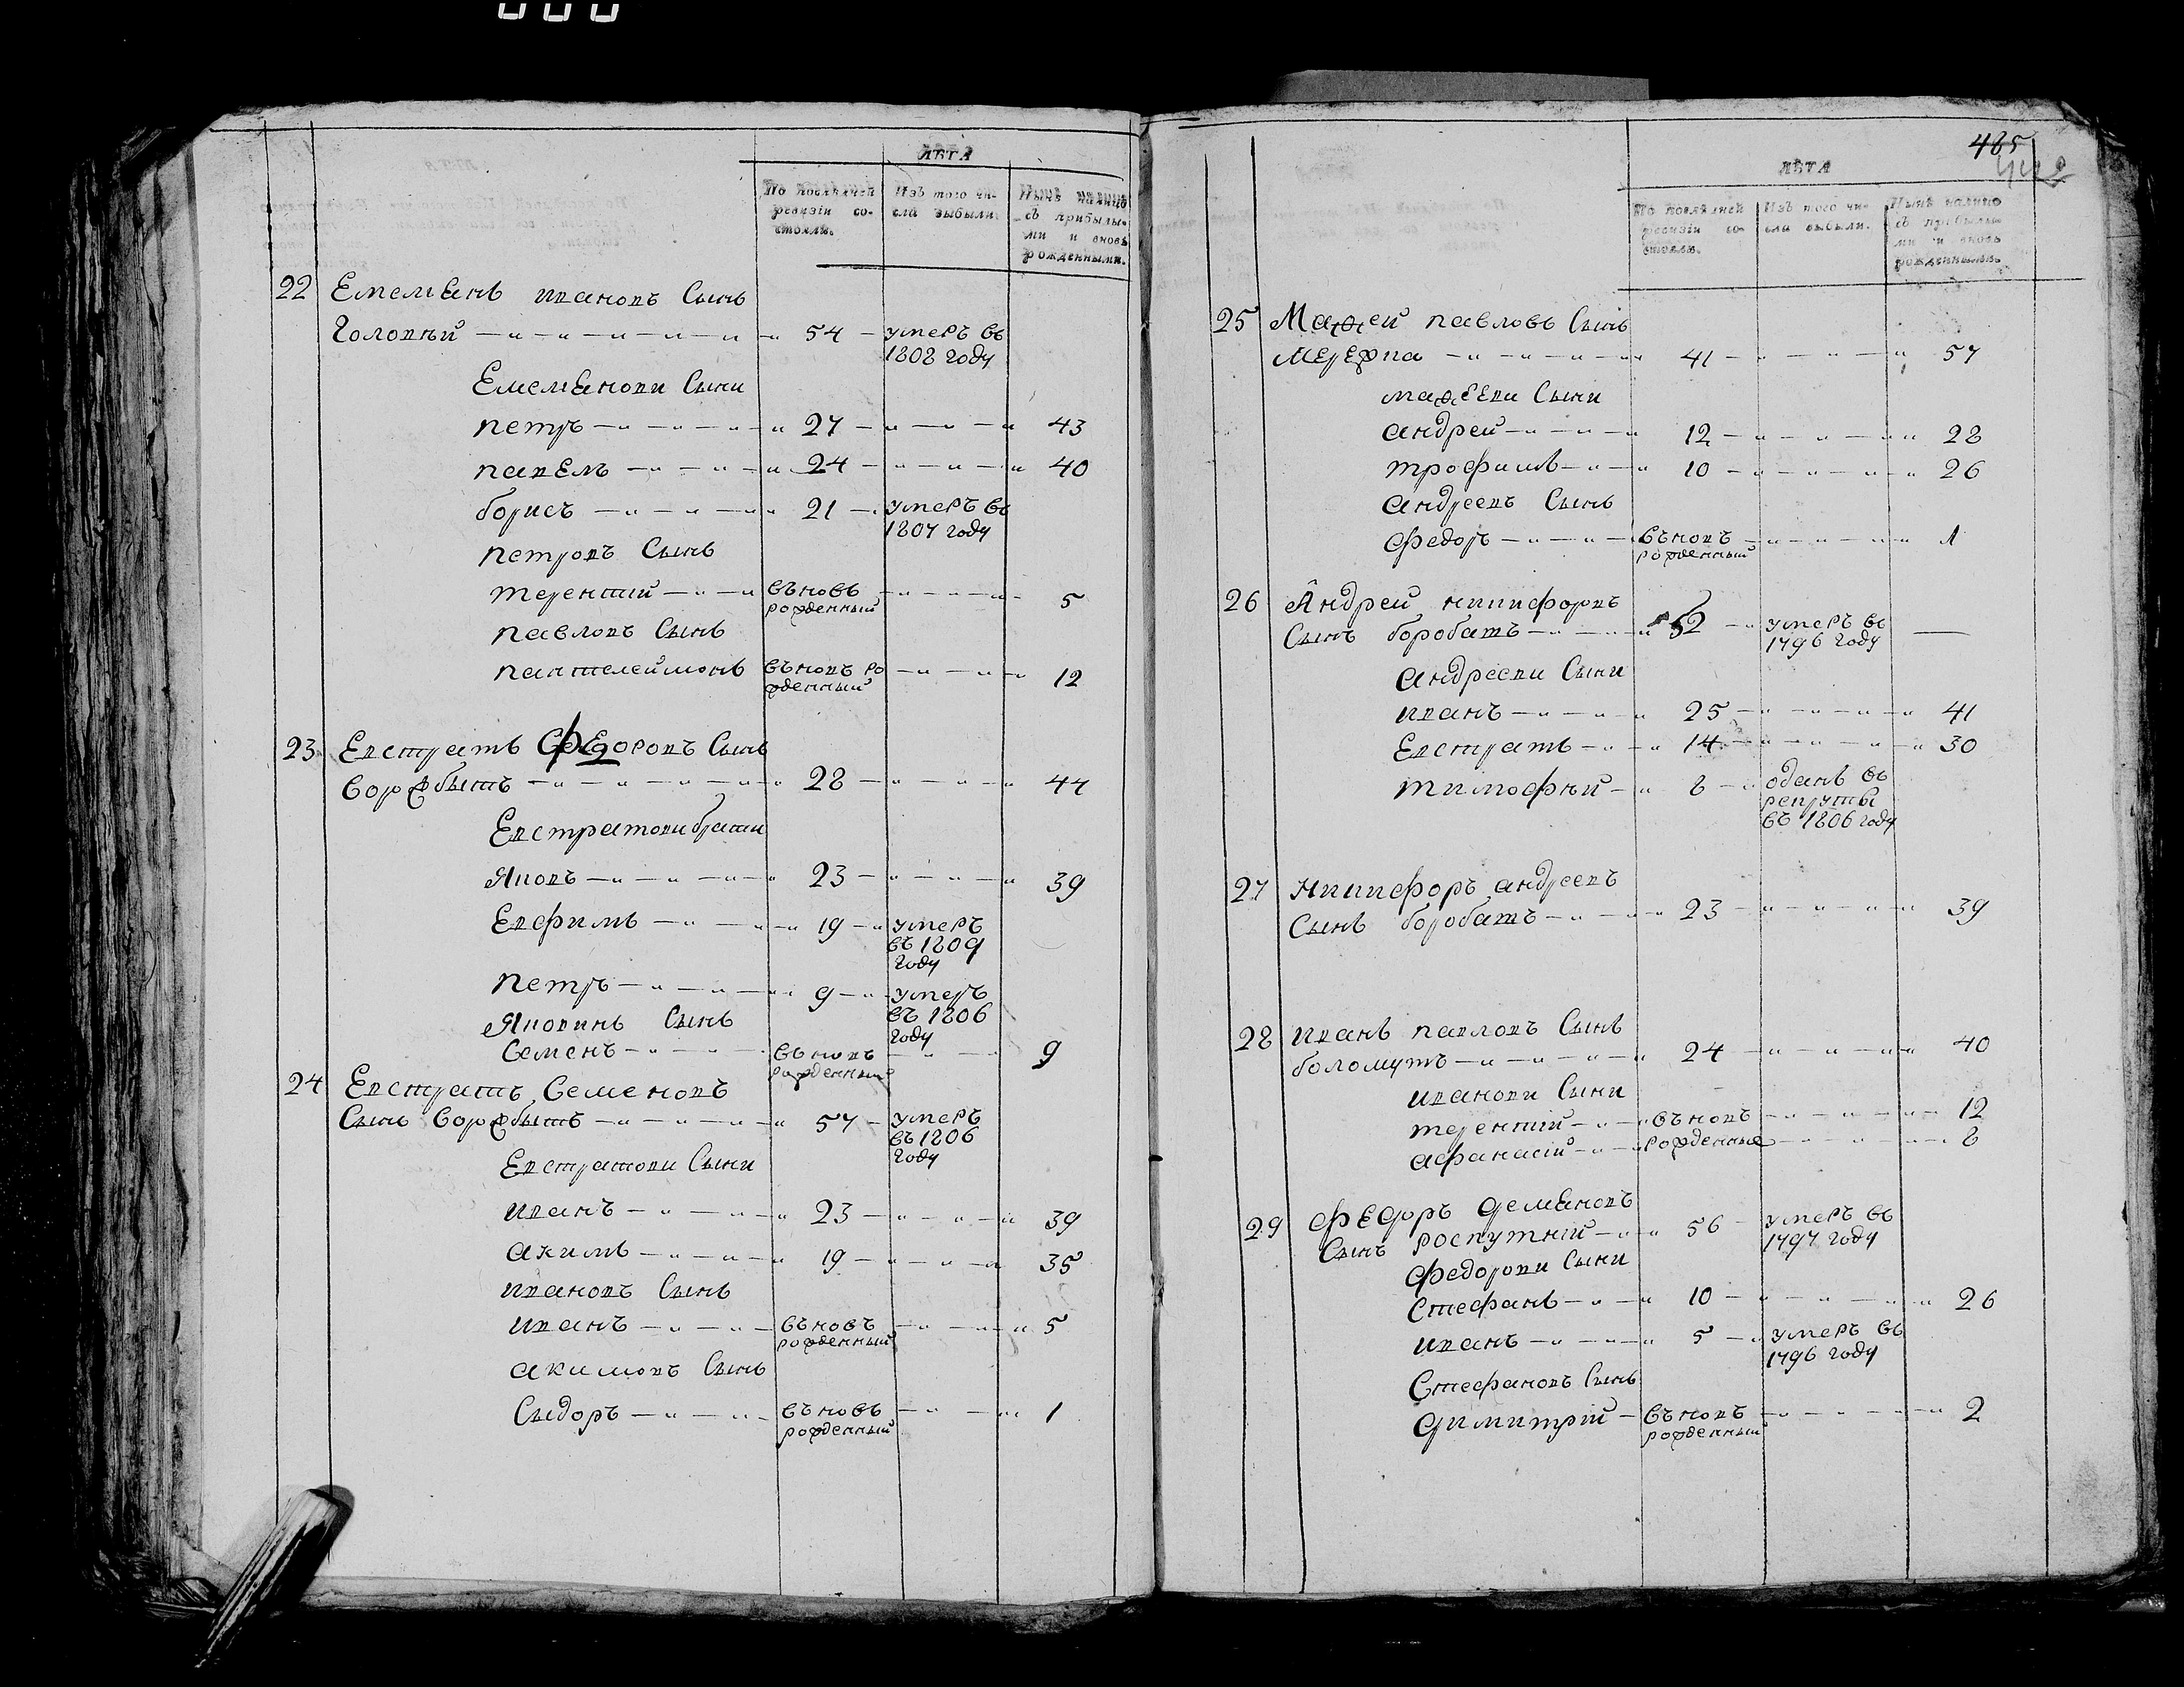 ЛѢТА
По послѣдней ревизіи состояло.
Изъ того числа выбыли.
Нынѣ налицо съ прибылыми и вновь рожденными.
22 Емельянъ ивановъ Сынъ
Головнѣй 54 умеръ въ
1808 году
Емельянови Сыни
петръ 27 43
павелъ 24 40
борисъ 21 умеръ въ
1807 году
петровъ Сынъ
терентій въновъ
рожденный 5
павловъ Сынъ
пантелеймонъ въновъ ро
жденный 12
23 Евстратъ Федоровъ Сынъ
Воробытъ 28 44
Евстратови брати
Яковъ 23 39
Евфимъ 19 умеръ
въ 1809
году
петръ 9 умеръ
въ 1806
году
Яковинъ Сынъ
Семенъ въновъ
рожденный 9
24 Евстратъ Семеновъ
Сынъ Воробытъ 57 умеръ
въ 1806
году
Евстратови Сыни
иванъ 23 39
акимъ 19 35
ивановъ Сынъ
иванъ въновъ
рожденный 5
акимовъ Сынъ
Сыдоръ въновъ
рожденный 1
465
ЛѢТА
По послѣдней ревизіи состояло.
Изъ того числа выбыли.
Нынѣ налицо съ прибылыми и вновь рожденными.
25 Матфей павловъ Сынъ
Мережка 41 57
матфееви Сыни
андрей 12 28
трофимъ 10 26
андреевъ Сынъ
федоръ въновъ
рожденный 1
26 Андрей никифоровъ
Сынъ боробатъ 52 умеръ въ
1796 году
андрееви Сыни
иванъ 25 41
Евстратъ 14 30
тимофѣй 8 оданъ въ
рекруты
въ 1806 году
27 Никифоръ андреевъ
Сынъ боробатъ 23 39
28 иванъ павловъ Сынъ
боломутъ 24 40
иванови Сыни
терентій въновъ 12
афанасій рожденные 8
29 Федоръ Демяновъ
Сынъ роспутній 56 умеръ въ
1797 году
федорови Сыни
Стефанъ 10 26
иванъ 5 умеръ въ
1796 году
Стефановъ Сынъ
димитрій въновъ
рожденный 2